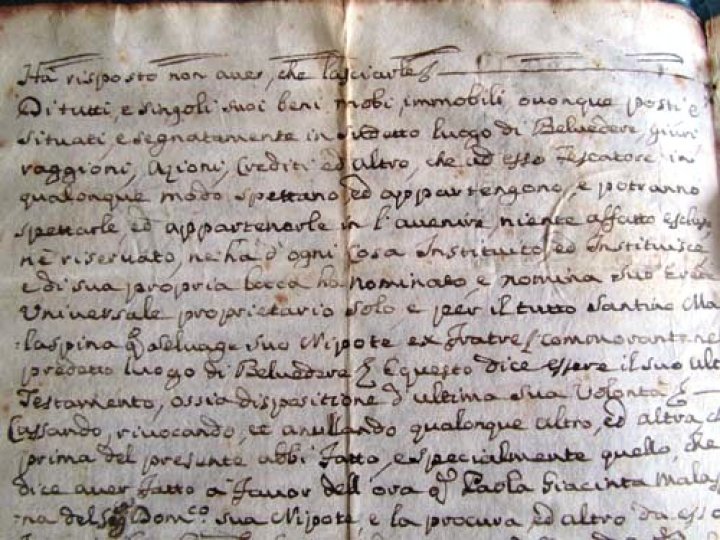 Ha risposto non aver, che lasciarle
Di tutti, e singoli suoi beni mobi, immobili, ovonque posti e
situati, e segnatamente in sudetto luogo di Belvedere, giuri
raggioni, Azioni, Crediti ed altro, che ad esso Testatore in
qualonque modo spettano ed appartengono, e potranno
spettarle, ed appartenerle in l'avenire, niente affatto escluso
nè riservato, ne ha d'ogni cosa Instituito ed Instituisce
e di sua propria bocca ha nominato, e nomina suo Erede
Universale proprietario solo, e per il tutto Santino Ma
laspina q. Selvage suo Nipote ex Fratre commorante nel
predetto luogo di Belvedere E questo dice essere il suo ult
Testamento, ossia dispositione d'ultima sua Volontà
Cassando, rivocando, et anullando qualonque altro, ed altra, ch
prima del presente abbi fatto, e specialmente quello, che
dice aver fatto a favor dell'ora q. Paola Giacinta Malas
na del Sig. Dom.co sua Nipote, e la procura, ed altro da esso